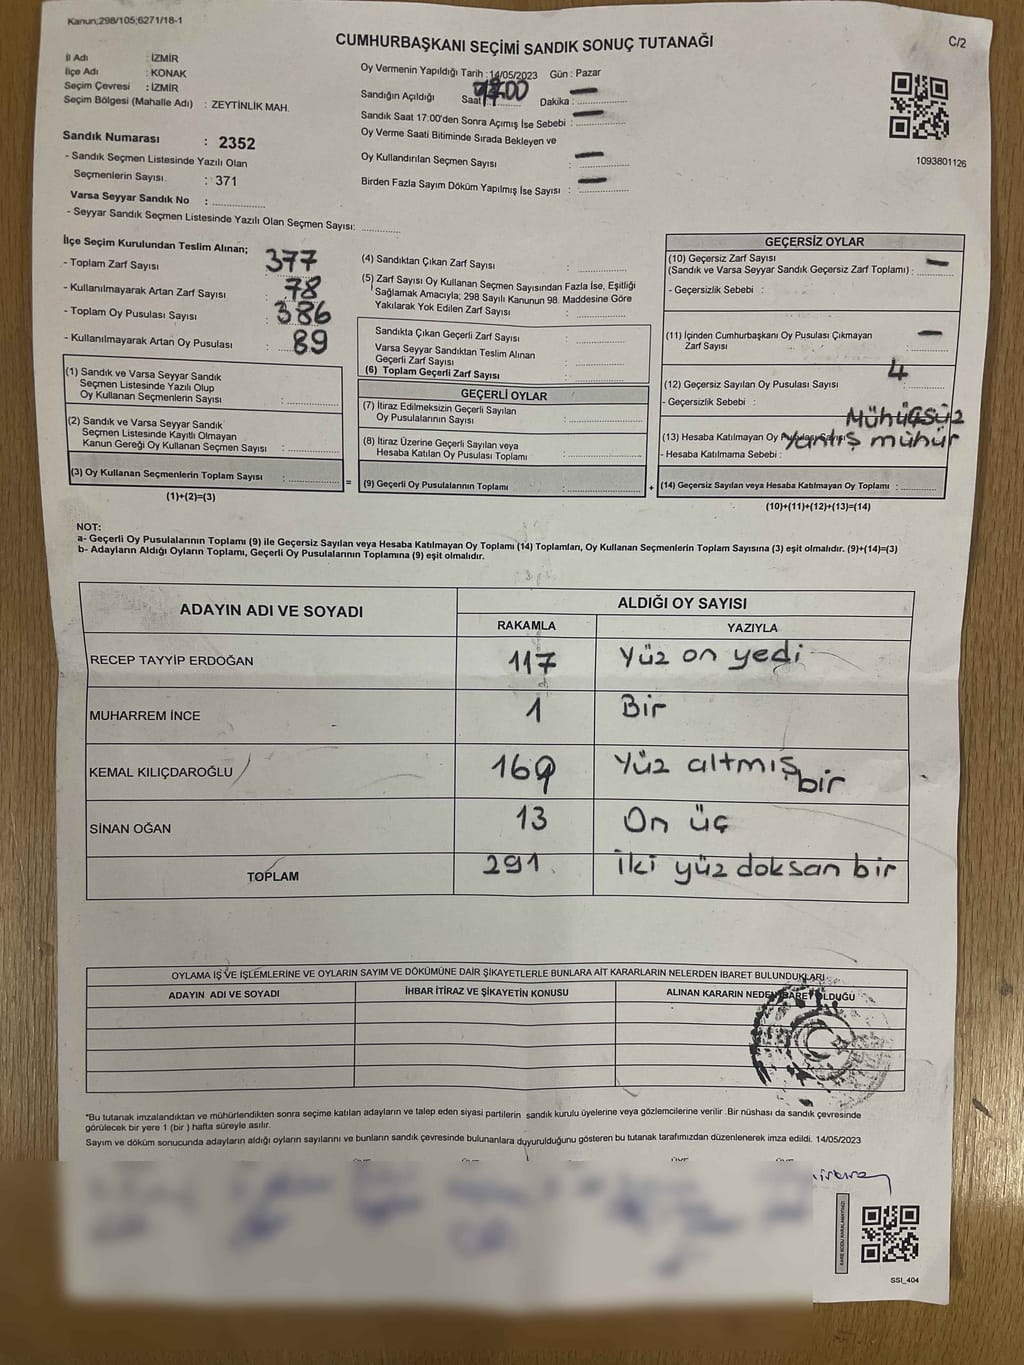 Kanun;298/105;6271/18-1
CUMHURBAŞKANI SEÇİMİ SANDIK SONUÇ TUTANAĞI
C/2
İl Adı : İZMİR
İlçe Adı : KONAK
Seçim Çevresi : İZMİR
Seçim Bölgesi (Mahalle Adı) : ZEYTİNLİK MAH.
Sandık Numarası : 2352
- Sandık Seçmen Listesinde Yazılı Olan
Seçmenlerin Sayısı. : 371
Varsa Seyyar Sandık No :
- Seyyar Sandık Seçmen Listesinde Yazılı Olan Seçmen Sayısı:
Oy Vermenin Yapıldığı Tarih : 14/05/2023 Gün : Pazar
Sandığın Açıldığı Saat : Dakika : —
Sandık Saat 17:00'den Sonra Açımış İse Sebebi : —
Oy Verme Saati Bitiminde Sırada Bekleyen ve
Oy Kullandırılan Seçmen Sayısı : —
Birden Fazla Sayım Döküm Yapılmış İse Sayısı : —
1093801126
İlçe Seçim Kurulundan Teslim Alınan;
- Toplam Zarf Sayısı : 377
- Kullanılmayarak Artan Zarf Sayısı : 78
- Toplam Oy Pusulası Sayısı : 386
- Kullanılmayarak Artan Oy Pusulası : 89
(1) Sandık ve Varsa Seyyar Sandık
Seçmen Listesinde Yazılı Olup
Oy Kullanan Seçmenlerin Sayısı :
(2) Sandık ve Varsa Seyyar Sandık
Seçmen Listesinde Kayıtlı Olmayan
Kanun Gereği Oy Kullanan Seçmen Sayısı :
(3) Oy Kullanan Seçmenlerin Toplam Sayısı :
(1)+(2)=(3)
(4) Sandıktan Çıkan Zarf Sayısı :
(5) Zarf Sayısı Oy Kullanan Seçmen Sayısından Fazla İse, Eşitliği
Sağlamak Amacıyla; 298 Sayılı Kanunun 98. Maddesine Göre
Yakılarak Yok Edilen Zarf Sayısı :
Sandıkta Çıkan Geçerli Zarf Sayısı :
Varsa Seyyar Sandıktan Teslim Alınan
Geçerli Zarf Sayısı :
(6) Toplam Geçerli Zarf Sayısı :
GEÇERLİ OYLAR
(7) İtiraz Edilmeksizin Geçerli Sayılan
Oy Pusulalarının Sayısı :
(8) İtiraz Üzerine Geçerli Sayılan veya
Hesaba Katılan Oy Pusulası Toplamı :
= (9) Geçerli Oy Pusulalarının Toplamı :
GEÇERSİZ OYLAR
(10) Geçersiz Zarf Sayısı
(Sandık ve Varsa Seyyar Sandık Geçersiz Zarf Toplamı) : —
- Geçersizlik Sebebi :
(11) İçinden Cumhurbaşkanı Oy Pusulası Çıkmayan
Zarf Sayısı : —
(12) Geçersiz Sayılan Oy Pusulası Sayısı : 4
- Geçersizlik Sebebi : Mühürsüz
(13) Hesaba Katılmayan Oy Pusulası Sayısı Yanlış mühür
- Hesaba Katılmama Sebebi :
+ (14) Geçersiz Sayılan veya Hesaba Katılmayan Oy Toplamı :
(10)+(11)+(12)+(13)=(14)
NOT:
a- Geçerli Oy Pusulalarının Toplamı (9) ile Geçersiz Sayılan veya Hesaba Katılmayan Oy Toplamı (14) Toplamları, Oy Kullanan Seçmenlerin Toplam Sayısına (3) eşit olmalıdır. (9)+(14)=(3)
b- Adayların Aldığı Oyların Toplamı, Geçerli Oy Pusulalarının Toplamına (9) eşit olmalıdır.
ADAYIN ADI VE SOYADI
ALDIĞI OY SAYISI
RAKAMLA YAZIYLA
RECEP TAYYİP ERDOĞAN 117 Yüz on yedi
MUHARREM İNCE 1 Bir
KEMAL KILIÇDAROĞLU Yüz altmış bir
SİNAN OĞAN 13 On üç
TOPLAM 291 İki yüz doksan bir
OYLAMA İŞ VE İŞLEMLERİNE VE OYLARIN SAYIM VE DÖKÜMÜNE DAİR ŞİKAYETLERLE BUNLARA AİT KARARLARIN NELERDEN İBARET BULUNDUKLARI
ADAYIN ADI VE SOYADI İHBAR İTİRAZ VE ŞİKAYETİN KONUSU ALINAN KARARIN NEDEN İBARET OLDUĞU
*Bu tutanak imzalandıktan ve mühürlendikten sonra seçime katılan adayların ve talep eden siyasi partilerin sandık kurulu üyelerine veya gözlemcilerine verilir .Bir nüshası da sandık çevresinde
görülecek bir yere 1 (bir ) hafta süreyle asılır.
Sayım ve döküm sonucunda adayların aldığı oyların sayılarını ve bunların sandık çevresinde bulunanlara duyurulduğunu gösteren bu tutanak tarafımızdan düzenlenerek imza edildi. 14/05/2023
KARE KODU KARALAMAYINIZ!
SSI_404